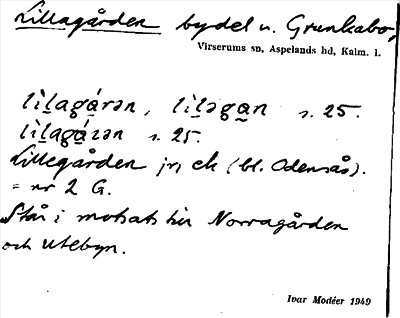 Lillagården bydel u. Grunkabo,
Virserums sn, Aspelands hd, Kalm. l.
lìlagá̱rən, lìləga̱n s. 25.
lìlagá̱rən s. 25.
Lillegården jr, ek (bl. Odensås).
= nr 2 G.
Står i motsats till Norragården
och Utebyn.
Ivar Modéer 1949